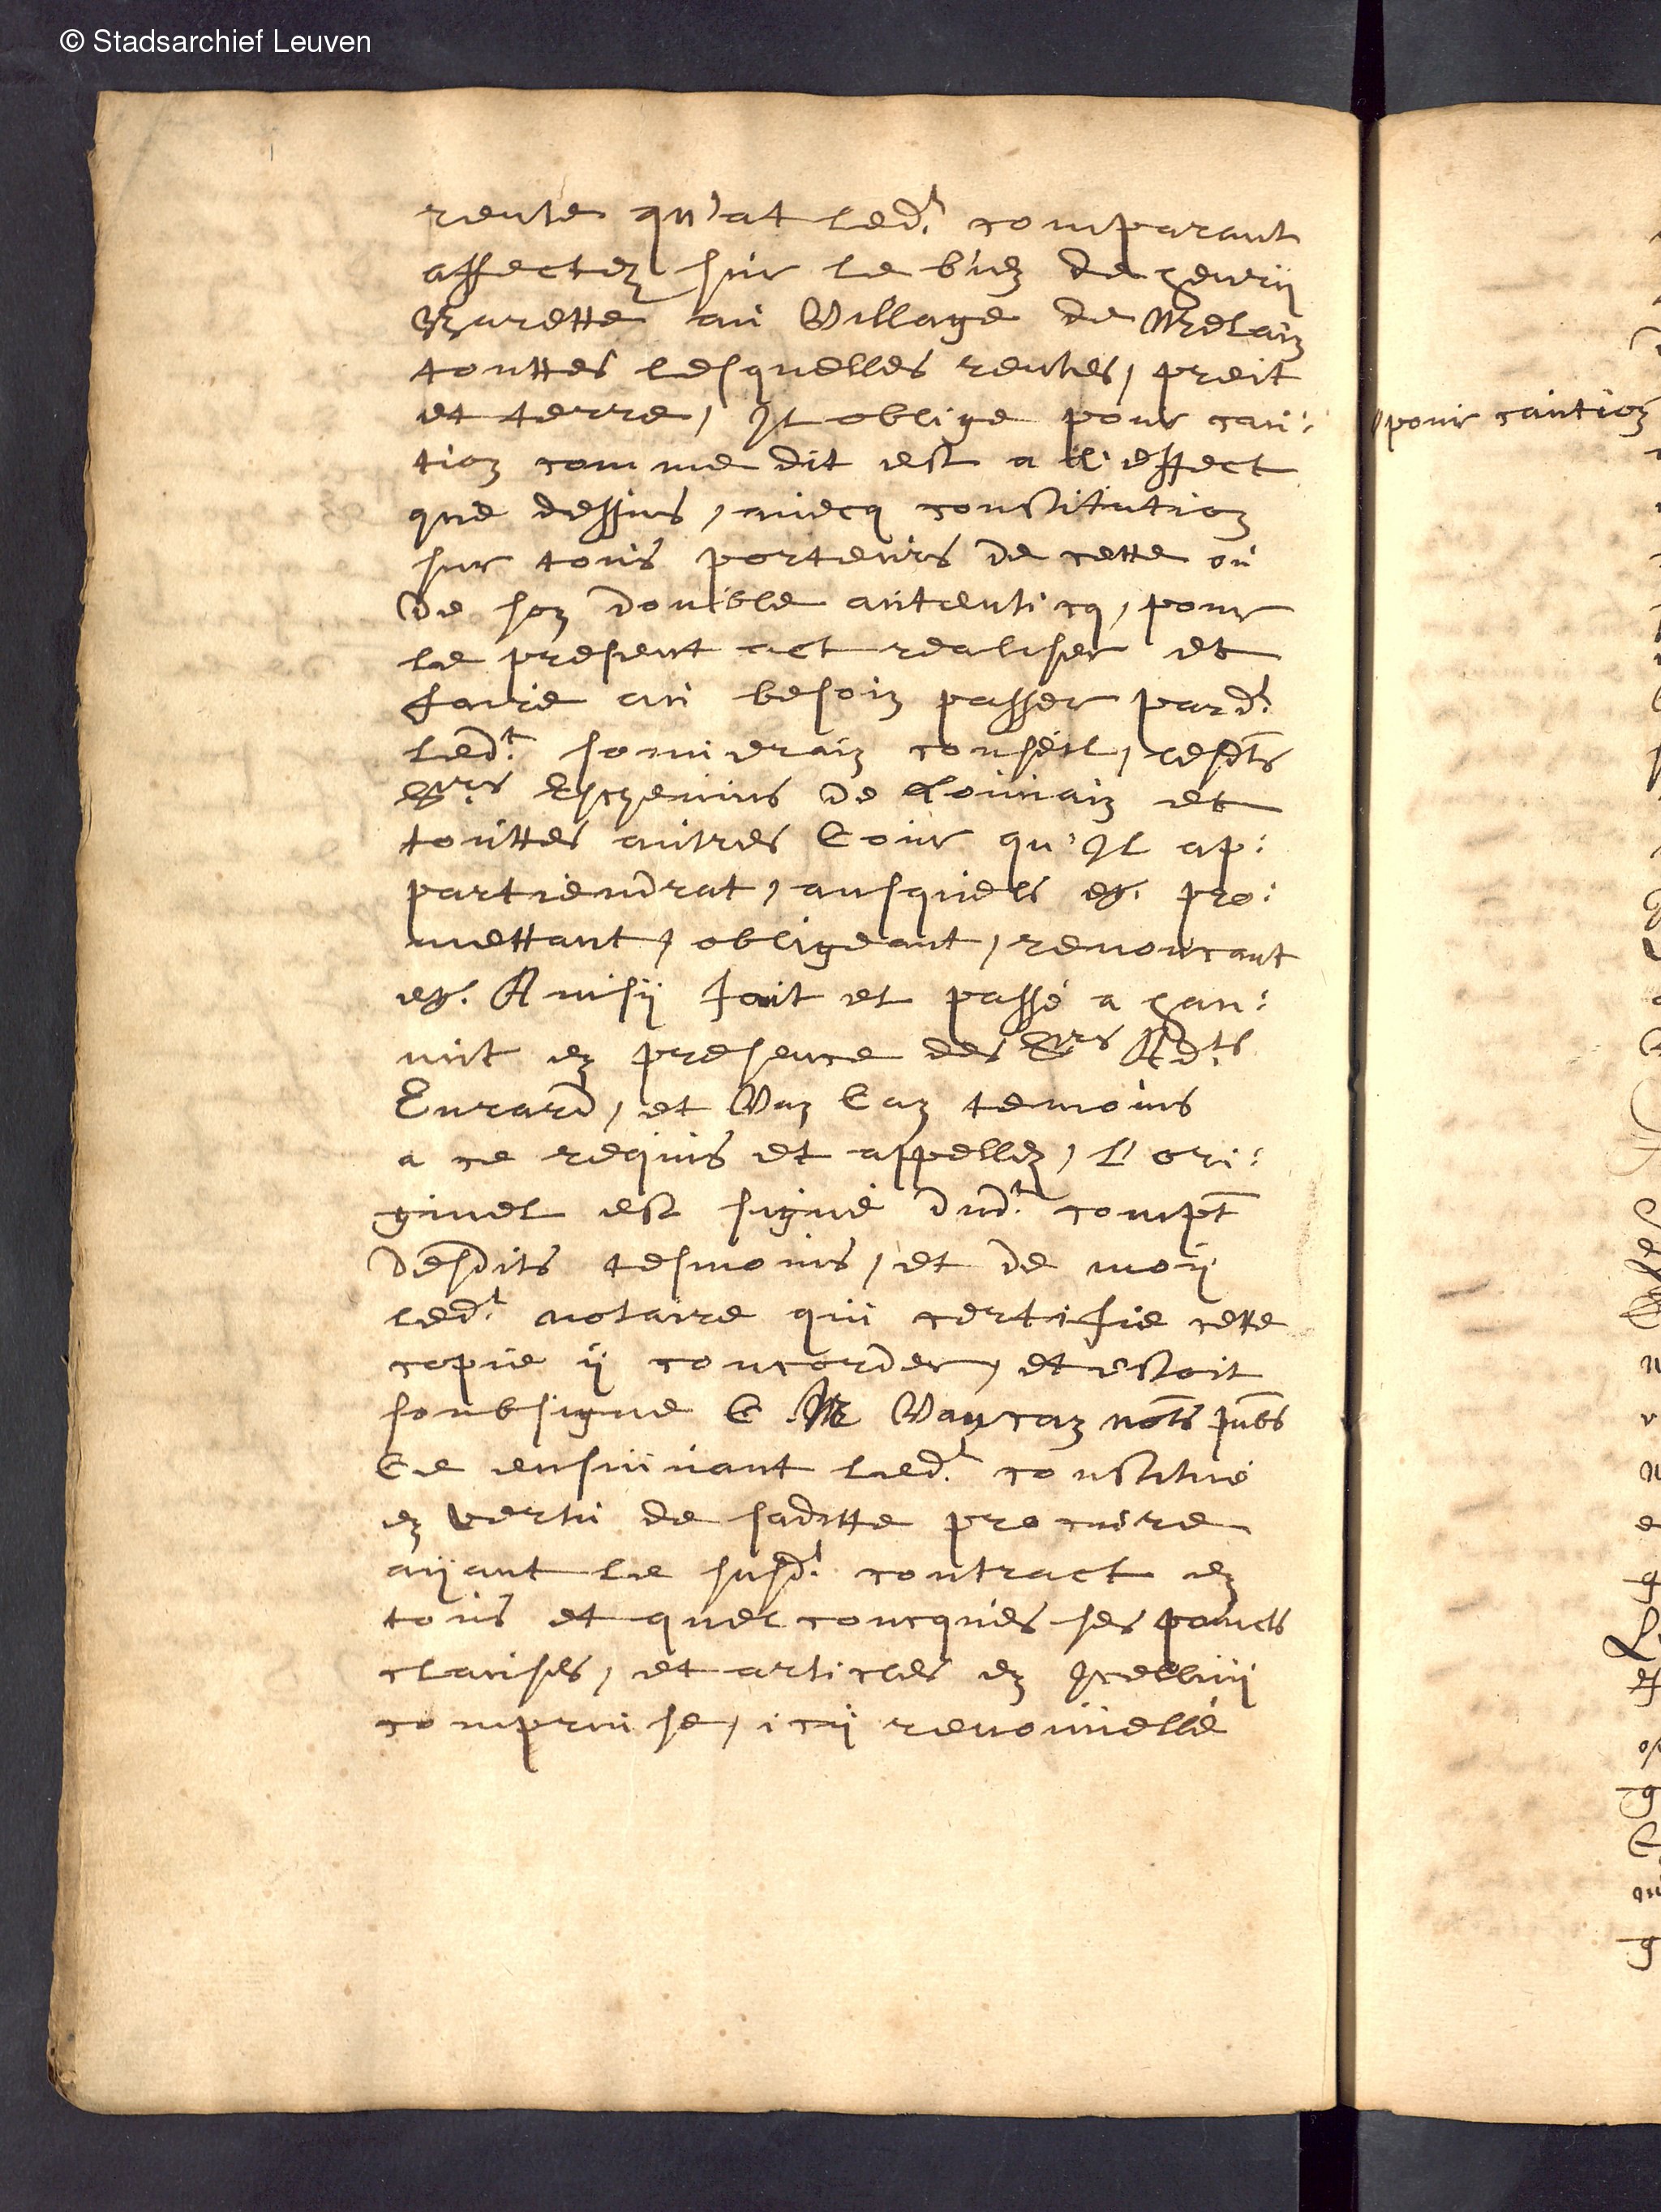 © Stadsarchief Leuven
rente qu'at led.t comparant
affectez sur le bien de henry
Barette au Village de Melain
touttes lesquelles rentes, preit
et terre, Il oblige pour cau:
tion comme dit est a l'effect
que dessus, auecq constitution
sur tous porteurs de cette ou
de son double autenticq, pour
le present act realiser et
faire au besoin passer pard.t
led.t souuerain conseil, lesdts
Srs Escheuins de Louuain et
touttes autres Cour qu'Il ap:
partiendrat, ausquels etc. pro:
mettant, obligeant, renoncant
etc. Ainsÿ fait et passé a han:
nut en presence des Srs Adts
Eurard, et Van Can temoins
a ce requis et appellez, L'ori:
ginel est signé dud.t compt
desdits tesmoins, et de moÿ
led.t notaire qui certifie cette
copie ÿ concorder, et estoit
soubsigne E M Vancan nots pubs
Ce ensuiuant led.t constitué
en vertu de saditte procure
aÿant le susd.t contract en
tous et quelconcques ses poincts
clauses, et articles en Icelluÿ
comprinse, icÿ renouuellé
pour caution